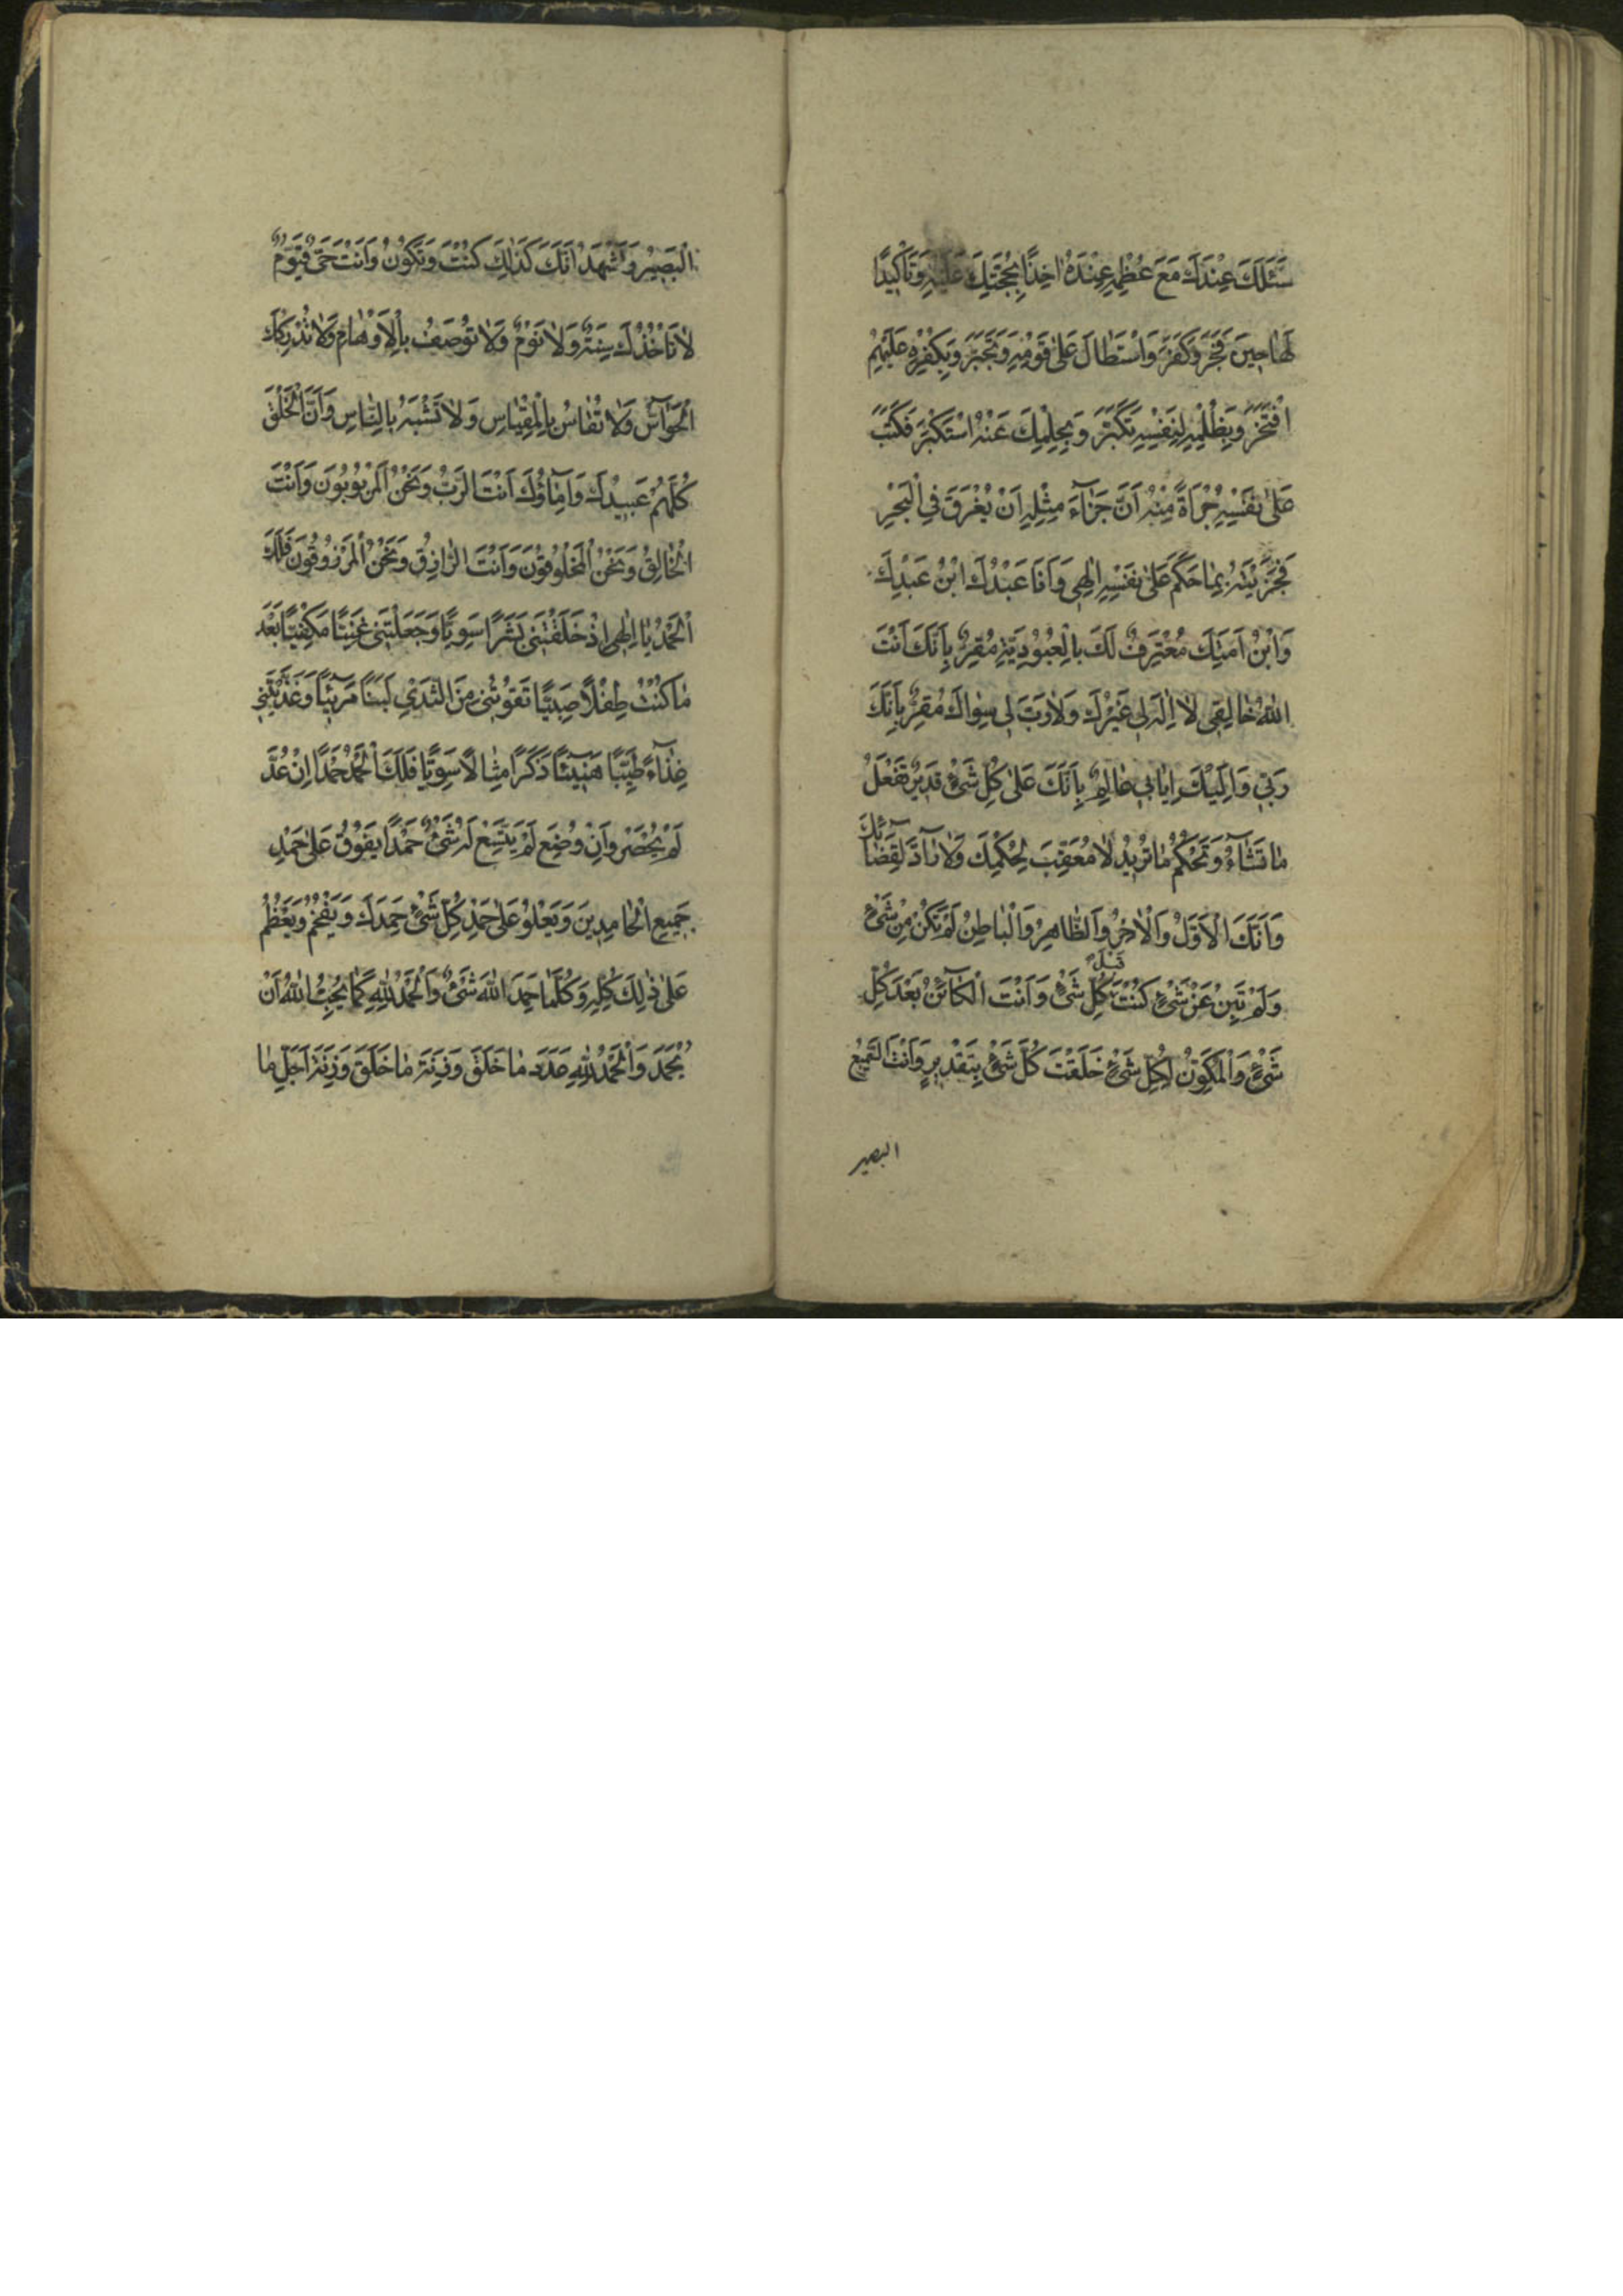 سَئَلَكَ عِنْدَكَ مَعَ عُظْمِهِ عِنْدَهُ اَخِذًا بِحُجَّتِكَ عَلَيْهِ وَتَأْكِيدًا
لَهٰا حِينَ فَجَرَ وَكَفَرَ وَاسْتَطٰالَ عَلىٰ قَوْمِهِ وَتَجَبَّرَ وَبِكُفْرِهِ عَلَيْهِمْ
افْتَخَرَ وَبِظُلْمِهِ لِنَفْسِهِ تَكَبَّرَ وَبِحِلْمِكَ عَنْهُ اسْتَكْبَرَ فَكَتَبَ
عَلىٰ نَفْسِهِ جُرْاَةً مِنْهُ اَنَّ جَزٰآءَ مِثْلِهِ اَنْ يُغْرَقَ فِي الْبَحْرِ
فَجَزَيْتَهُ بِمٰا حَكَمَ عَلىٰ نَفْسِهِ اِلٰهِي وَاَنَا عَبْدُكَ ابْنُ عَبْدِكَ
وَابْنُ اَمَتِكَ مُعْتَرِفٌ لَكَ بِالْعُبُودِيَّةِ مُقِرٌّ بِاَنَّكَ اَنْتَ
اللهُ خٰالِقِي لٰا اِلٰهَ لِي غَيْرُكَ وَلٰا رَبَّ لِي سِوٰاكَ مُقِرٌّ بِاَنَّكَ
رَبِّي وَاِلَيْكَ اِيٰابِي عٰالِمٌ بِاَنَّكَ عَلىٰ كُلِّ شَيْءٍ قَدِيرٌ تَفْعَلُ
مٰا تَشٰآءُ وَتَحْكُمُ مٰا تُرِيدُ لٰا مُعَقِّبَ لِحُكْمِكَ وَلٰا رٰآدَّ لِقَضٰآئِكَ
وَاَنَّكَ الْاَوَّلُ وَالْاٰخِرُ وَالظّٰاهِرُ وَالْبٰاطِنُ لَمْ تَكُنْ مِنْ شَيْءٍ
وَلَمْ تَبِنْ عَنْ شَيْءٍ كُنْتَ قَبْلَ كُلِّ شَيْءٍ وَاَنْتَ الْكٰآئِنُ بَعْدَ كُلِّ
شَيْءٍ وَالْمُكَوِّنُ لِكُلِّ شَيْءٍ خَلَقْتَ كُلَّ شَيْءٍ بِتَقْدِيرٍ وَاَنْتَ السَّمِيعُ
البصير
الْبَصِيْرُ وَاَشْهَدُ اَنَّكَ كَذٰلِكَ كُنْتَ وَتَكُوْنُ وَاَنْتَ حَيٌّ قَيُّوْمٌ
لٰا تَاْخُذُكَ سِنَةٌ وَلٰا نَوْمٌ وَلٰا تُوْصَفُ بِالْاَوْهٰامِ وَلٰا تُدْرِكُكَ
الْحَوٰآسُّ وَلٰا تُقٰاسُ بِالْمِقْيٰاسِ وَلٰا تُشْبَهُ بِالنّٰاسِ وَاَنَّ الْخَلْقَ
كُلَّهُمْ عَبِيْدُكَ وَاِمٰآؤُكَ اَنْتَ الرَّبُّ وَنَحْنُ الْمَرْبُوْبُوْنَ وَاَنْتَ
الْخٰالِقُ وَنَحْنُ الْمَخْلُوْقُوْنَ وَاَنْتَ الرّٰازِقُ وَنَحْنُ الْمَرْزُوْقُوْنَ فَلَكَ
الْحَمْدُ يٰا اِلٰهِي اِذْ خَلَقْتَنِي بَشَرًا سَوِيًّا وَجَعَلْتَنِي غَنِيًّا مَكْفِيًّا بَعْدَ
مٰا كُنْتُ طِفْلًا صَبِيًّا تَقُوْتُنِي مِنَ الثَّدْيِ لَبَنًا مَرِيْئًا وَغَذَّيْتَنِي
غِذٰآءً طَيِّبًا هَنِيْئًا ذَكَرًا مِثٰالًا سَوِيًّا فَلَكَ الْحَمْدُ حَمْدًا اِنْ عُدَّ
لَمْ يُحْصَرْ وَاِنْ وُضِعَ لَمْ يَتَّسِعْ لَهُ شَيْءٌ حَمْدًا يَفُوْقُ عَلىٰ حَمْدِ
جَمِيعِ الْحٰامِدِينَ وَيَعْلُوْ عَلىٰ حَمْدِ كُلِّ شَيْءٍ حَمِدَكَ وَيَفْخُمُ وَيَعْظُمُ
عَلىٰ ذٰلِكَ كُلِّهِ وَكُلَّمٰا حَمِدَ اللهَ شَيْءٌ وَالْحَمْدُ لِلّٰهِ كَمٰا يُحِبُّ اللهُ اَنْ
يُحْمَدَ وَالْحَمْدُ لِلّٰهِ عَدَدَ مٰا خَلَقَ وَزِنَةَ مٰا خَلَقَ وَزِنَةَ اَجَلِّ مٰا